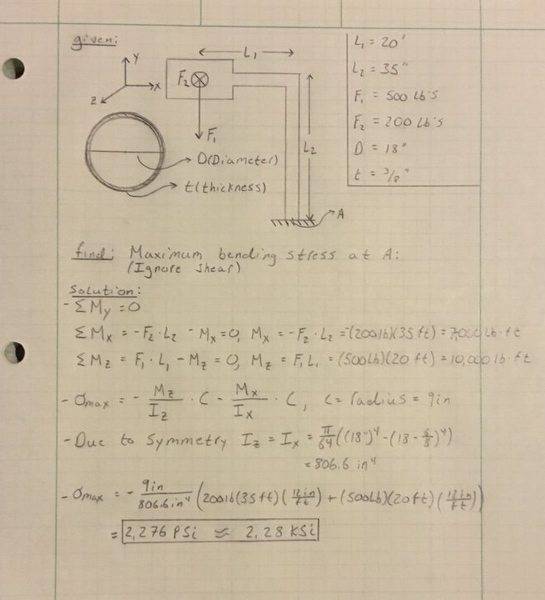 given:
L₁
L₁ = 20'
Y
X
Z
F₂
L₂ = 35"
F₁ = 500 Lb's
F₁
L₂
F₂ = 200 Lb's
D(Diameter)
D = 18"
t(thickness)
t = 3/8"
A
find: Maximum bending stress at A:
(Ignore shear)
Solution:
- ΣMy = 0
ΣMx = -F₂·L₂ - Mx = 0, Mx = -F₂·L₂ = -(200lb)(35ft) = 7,000 Lb·ft
ΣMz = F₁·L₁ - Mz = 0, Mz = F₁L₁ = (500Lb)(20ft) = 10,000 lb·ft
- σmax = - Mz/Iz · C - Mx/Ix · C, C = radius = 9in
- Due to Symmetry Iz = Ix = π/64((18")⁴ - (18 - 6/8)⁴)
= 806.6 in⁴
- σmax = - 9in/806.6in⁴ (200lb(35ft)(12in/ft) + (500Lb)(20ft)(12in/ft))
= 2,276 PSi ≈ 2,28 KSi